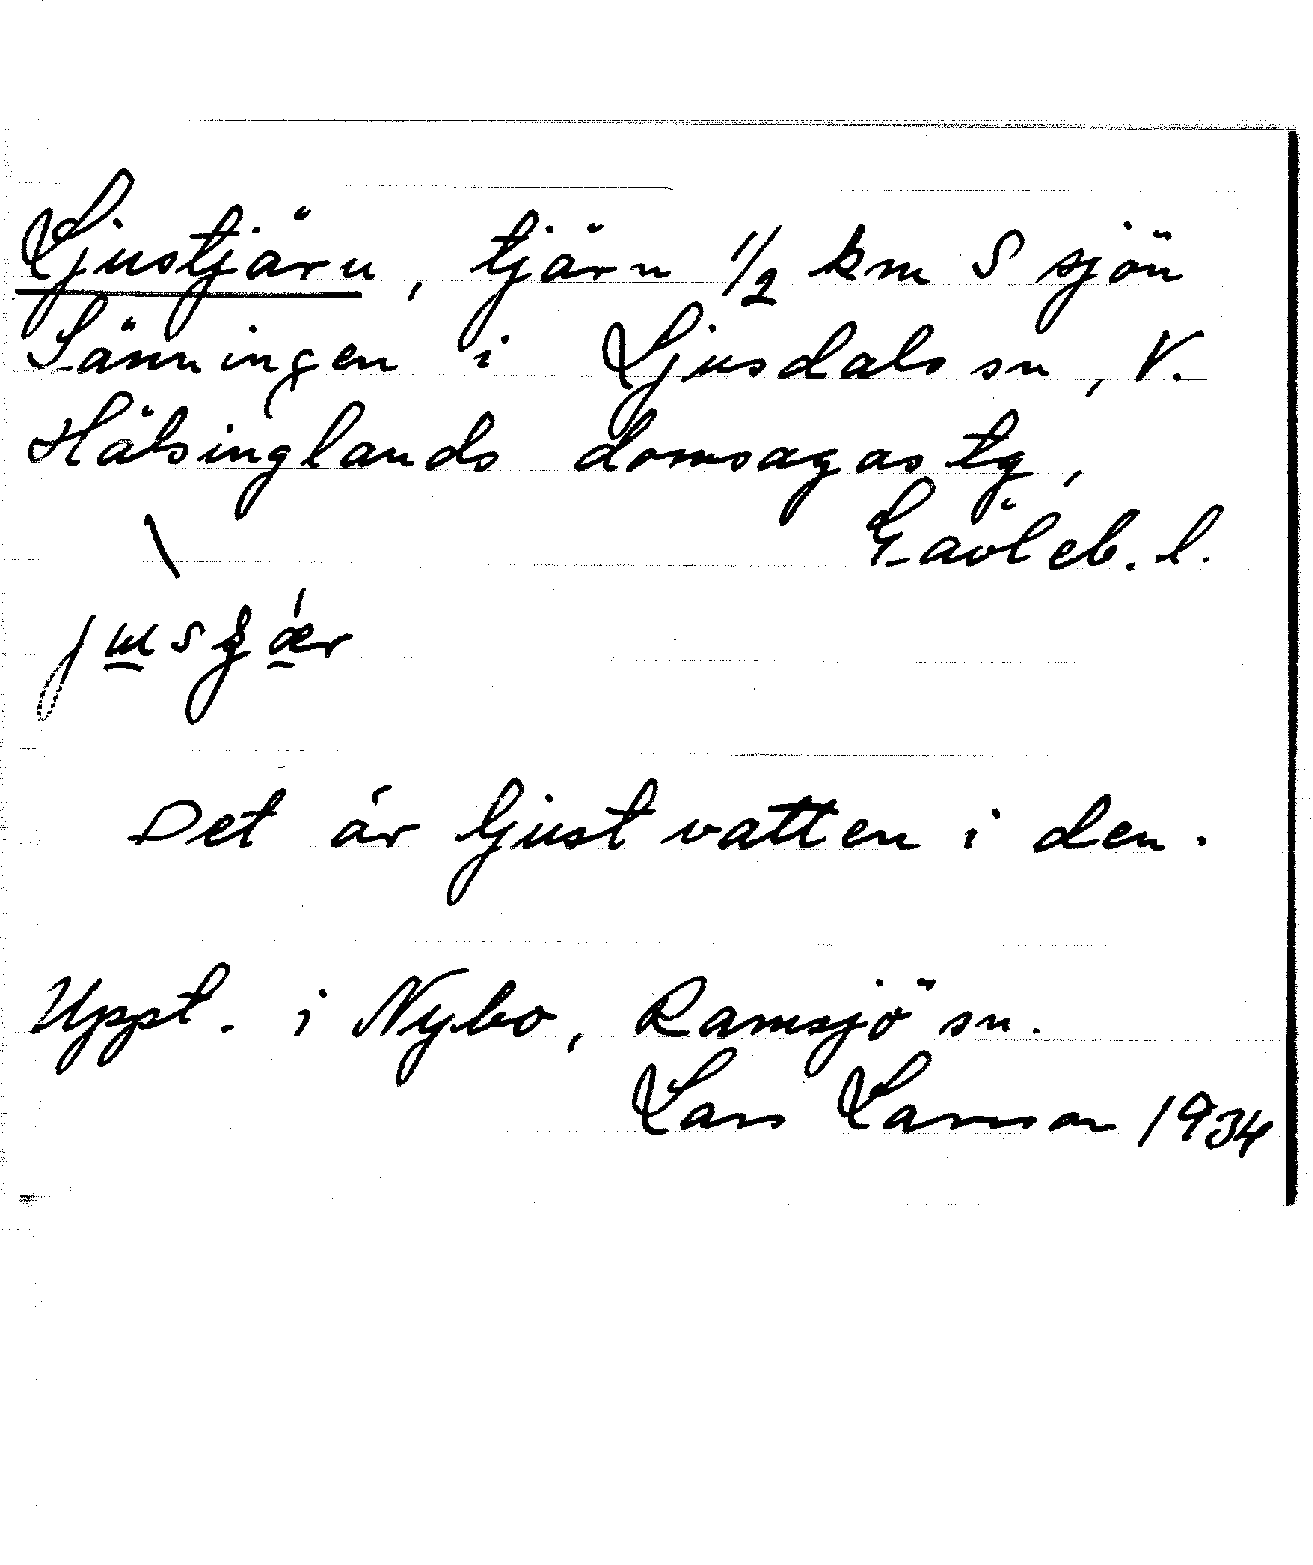 Ljustjärn, tjärn 1/2 km S sjön
Sänningen i Ljusdals sn, V.
Hälsinglands domsagas tg,
Gävleb. l.
Det är ljust vatten i den.
Uppt. i Nybo, Ramsjö sn.
Lars Larsson 1934